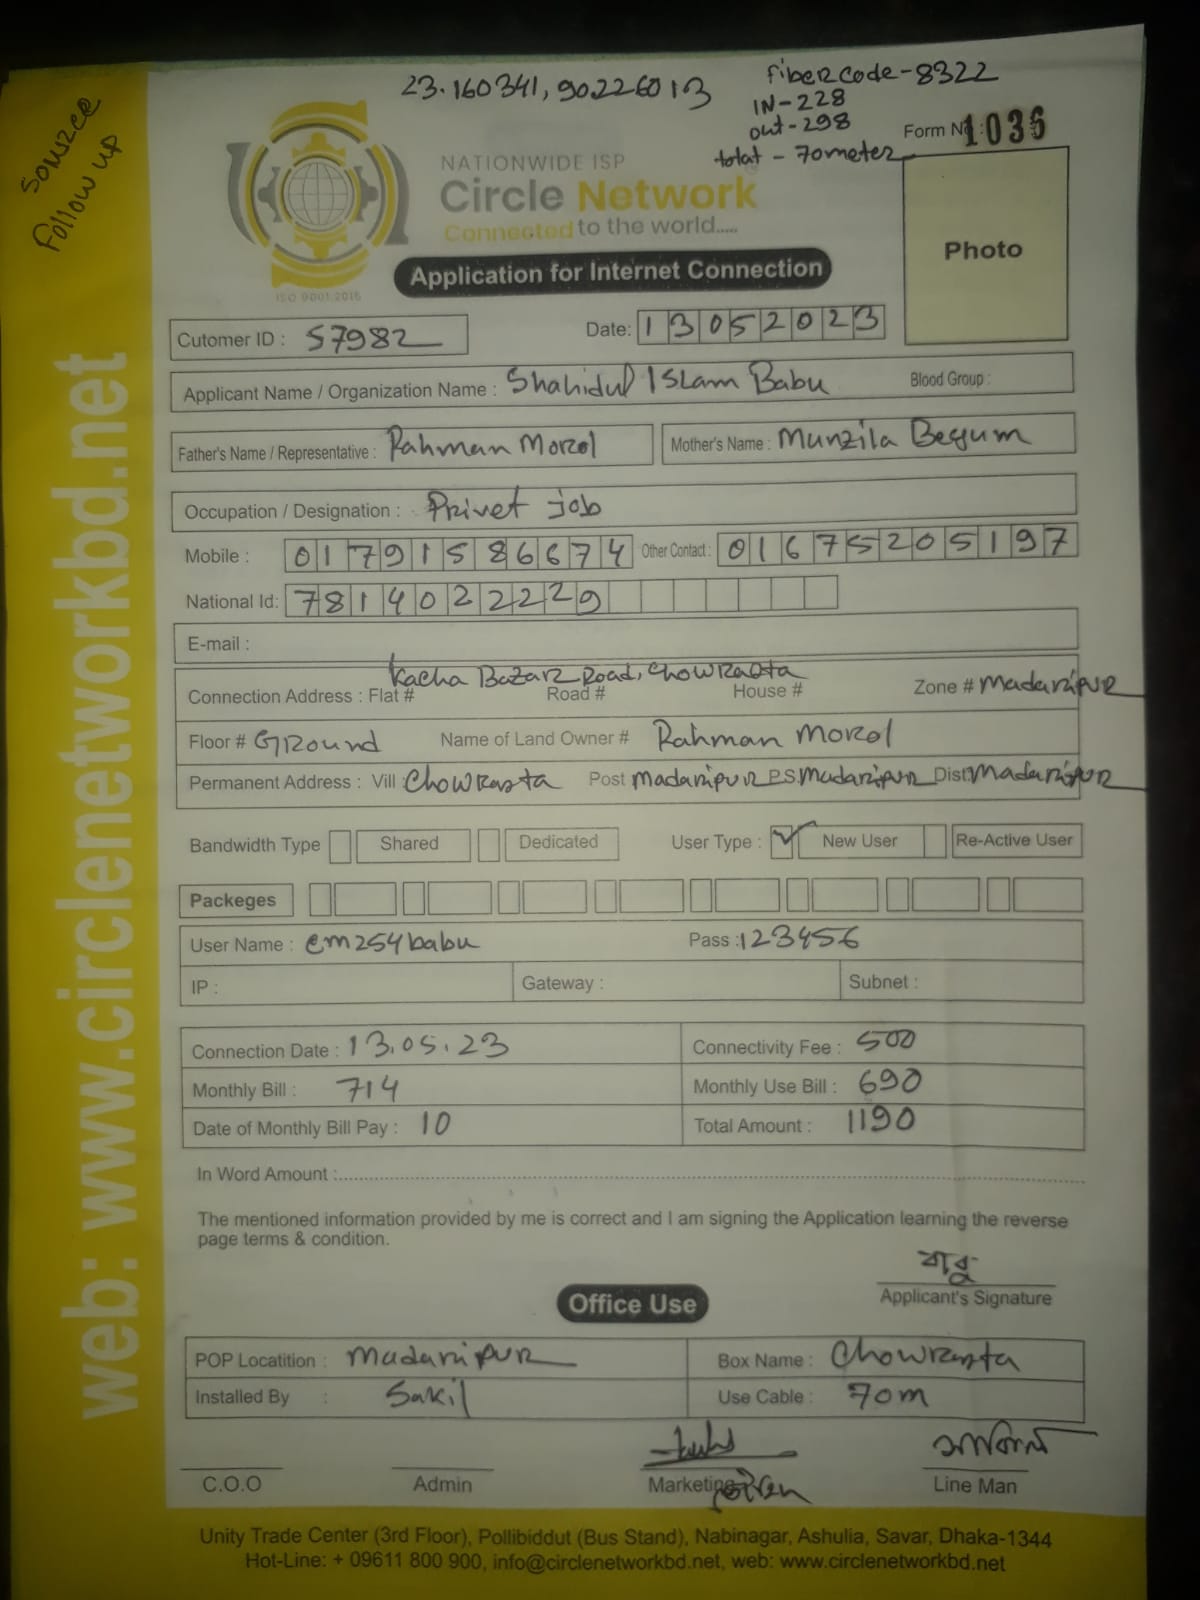 23.160341, 90.226013
fiber code - 8322
IN - 228
out - 298
total - 70 meter
Form No: 1036
follow up
NATIONWIDE ISP
Circle Network
Connected to the world.....
ISO 9001:2015
Photo
Application for Internet Connection
Cutomer ID : 57982
Date: 13052023
Applicant Name / Organization Name : Shahidul Islam Babu Blood Group :
Father's Name / Representative : Rahman Morol Mother's Name : Munzila Begum
Occupation / Designation : Privet job
Mobile : 01791586674 Other Contact : 01675205197
National Id: 7814022229
E-mail :
Kacha Bazar Road, Chowrasta
Connection Address : Flat # Road # House # Zone # Madaripur
Floor # Ground Name of Land Owner # Rahman Morol
Permanent Address : Vill : Chowrasta Post Madaripur P.S. Madaripur Dist. Madaripur
Bandwidth Type Shared Dedicated User Type : New User Re-Active User
Packeges
User Name : em254babu Pass : 123456
IP : Gateway : Subnet :
Connection Date : 13.05.23 Connectivity Fee : 500
Monthly Bill : 714 Monthly Use Bill : 690
Date of Monthly Bill Pay : 10 Total Amount : 1190
In Word Amount :
The mentioned information provided by me is correct and I am signing the Application learning the reverse
page terms & condition.
বাবু
Applicant's Signature
Office Use
POP Locatition : Madaripur Box Name : Chowrasta
Installed By : Sakil Use Cable : 70m
C.O.O Admin Marketing Line Man
Unity Trade Center (3rd Floor), Pollibiddut (Bus Stand), Nabinagar, Ashulia, Savar, Dhaka-1344
Hot-Line: + 09611 800 900, info@circlenetworkbd.net, web: www.circlenetworkbd.net
web: www.circlenetworkbd.net